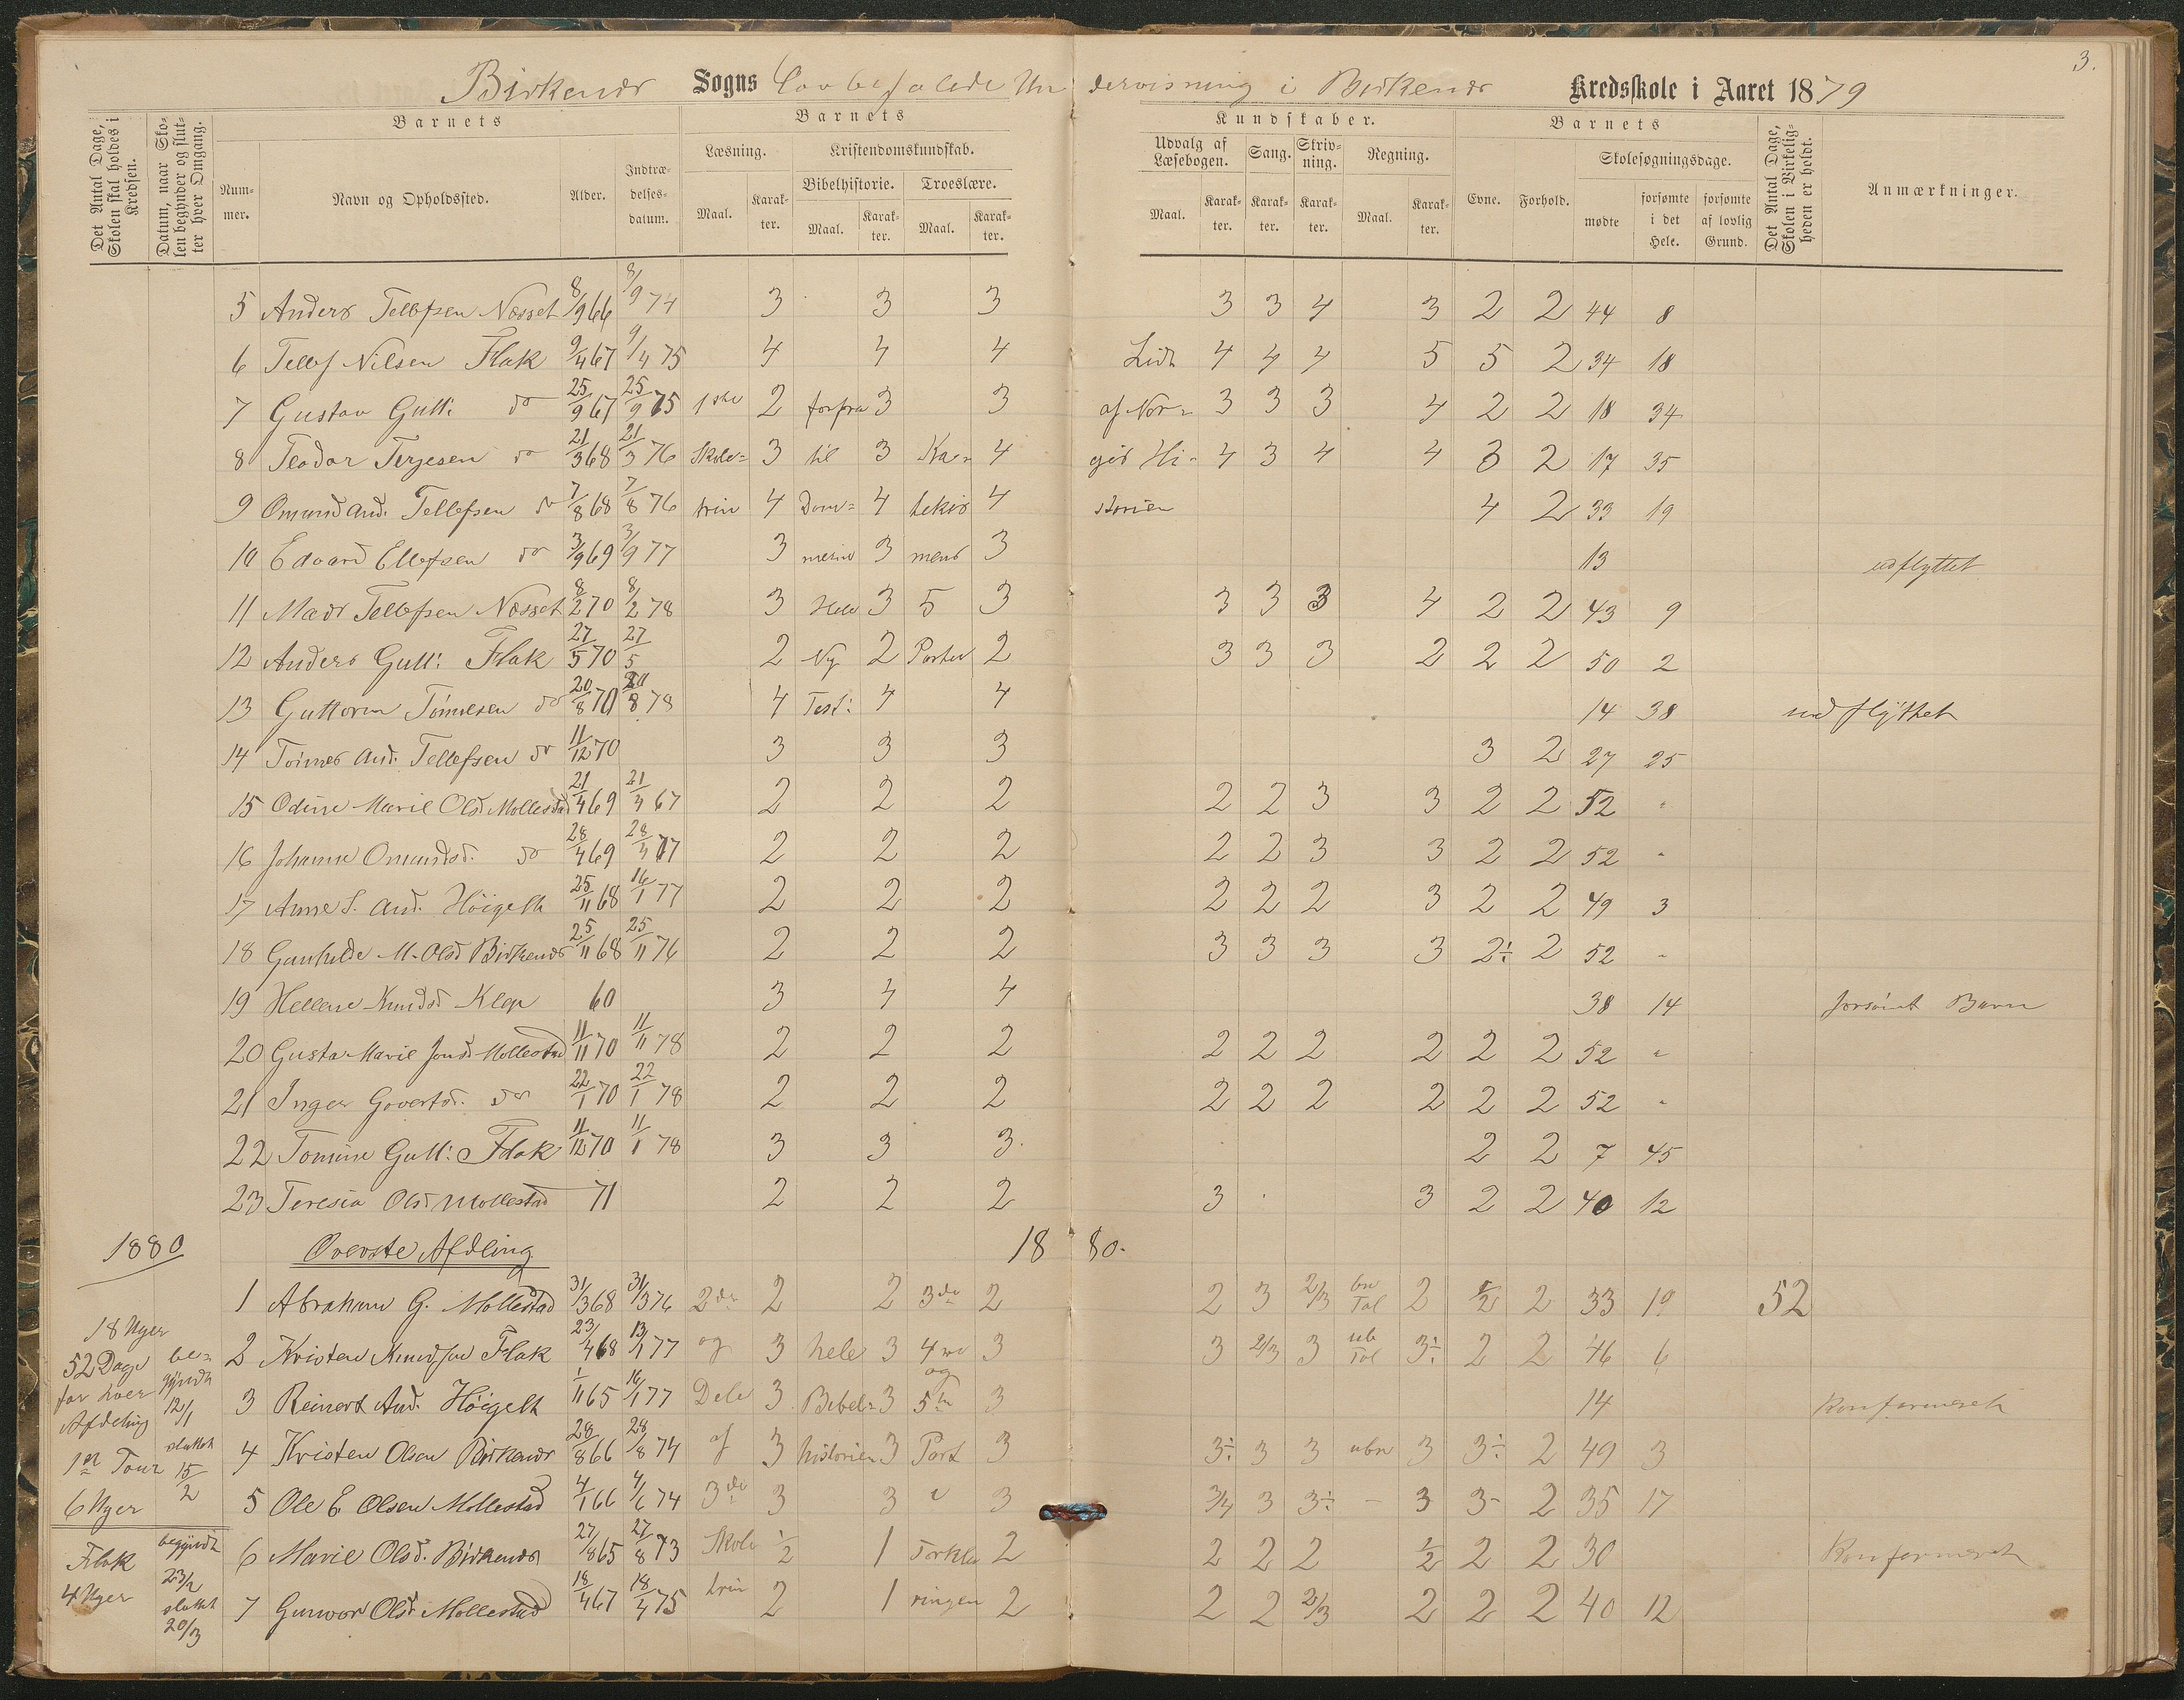 3.
Birkenæs Sogns Lovbefalede Undervisning i Birkenæs Kredsskole i Aaret 1879
Det Antal Dage, Skolen skal holdes i Kredsen.
Datum, naar Skolen begynder og slutter hver Omgang.
Barnets
Nummer.
Navn og Opholdssted.
Alder.
Indtrædelsesdatum.
Barnets
Læsning.
Maal.
Karakter.
Kristendomskundskab.
Bibelhistorie.
Maal.
Karakter.
Troeslære.
Maal.
Karakter.
Kundskaber.
Udvalg af Læsebogen.
Maal.
Karakter.
Sang.
Karakter.
Skrivning.
Karakter.
Regning.
Maal.
Karakter.
Barnets
Evne.
Forhold.
Skolesøgningsdage.
mødte
forsømte i det Hele.
forsømte af lovlig Grund.
Det Antal Dage, Skolen i Virkeligheden er holdt.
Anmærkninger.
5 Anders Tellefsen Næsset 8/9 66 8/9 74 3 3 3 3 3 4 3 2 2 44 8
6 Tellef Nilsen Flak 9/4 67 9/4 75 4 4 4 Lidt 4 4 4 5 5 2 34 18
7 Gustav Gutt: do 25/9 67 25/9 75 1ste 2 forfra 3 3 af Nor= 3 3 3 4 2 2 18 34
8 Teodor Terjesen do 21/3 68 21/3 76 Skole= 3 til 3 Ka= 4 ges Hi- 4 3 4 4 3 2 17 35
9 Omund And. Tellefsen do 7/8 68 7/8 76 trin 4 Dom= 4 tekis 4 storien 4 2 33 19
10 Edvard Ellefsen do 3/9 69 3/9 77 3 merne 3 mens 3 13 udflyttet
11 Mads Tellefsen Næsset 8/2 70 8/2 78 3 Hele 3 5 3 3 3 3 4 2 2 43 9
12 Anders Gutt: Flak 27/5 70 27/5 2 Ny 2 Parter 2 3 3 3 2 2 2 50 2
13 Guttorm Tønnesen do 20/8 70 20/8 78 4 Test: 4 4 14 38 udflyttet
14 Tønnes And. Tellefsen do 11/12 70 3 3 3 3 2 27 25
15 Odine Marie Olsd. Mollestad 21/4 69 21/4 67 2 2 2 2 2 3 3 2 2 52 "
16 Johanne Omundsd. do 28/4 69 28/4 77 2 2 2 2 2 3 3 2 2 52 "
17 Anne S. And. Høigelt 25/11 68 16/1 77 2 2 2 2 2 2 3 2 2 49 3
18 Gunhilde M. Olsd Birkenæs 25/11 68 25/11 76 2 2 2 3 3 3 3 2÷ 2 52 "
19 Hellene Knudsd Klep 60 3 4 4 38 14 forsømt Barn
20 Gusta Marie Jonsd. Mollestad 11/11 70 11/11 78 2 2 2 2 2 2 2 2 2 52 "
21 Inger Govertsd. do 22/1 70 22/1 78 2 2 2 2 2 2 2 2 2 52 "
22 Tomine Gutt: Flak 11/12 70 11/1 78 3 3 3. 2 2 7 45
23 Teresia Olsd. Mollestad 71 2 2 2 3 3 2 2 40 12
1880 Øverste Afdeling 1880.
1 Abraham G. Mollestad 31/3 68 31/3 76 2de 2 2 3de 2 2 3 2/3 bn Tal 2 2 2 33 19 52
2 Kristen Knudsen Flak 23/4 68 13/1 77 og 3 hele 3 4de og 3 3 2/3 3 ub Tal 3÷ 2 2 46 6
3 Reinert And. Høigelt 1/11 65 16/1 77 Dele 3 Bibel= 3 5te 3 14 Konfirmeret
4 Kristen Olsen Birkenæs 28/8 66 28/8 74 af 3 historien 3 Part 3 3÷ 3 3 ubn 3 3÷ 2 49 3
5 Ole E Olsen Mollestad 4/1 66 4/6 74 3de 3 3 3 3/4 3 3÷ - 3 3- 2 35 17
6 Marie Olsd. Birkenæs 27/8 65 27/8 73 Skole 1/2 1 Forkla 2 2 2 2 1/2 2 2 30 Konfirmeret
7 Gunvor Olsd. Mollestad 18/4 67 18/4 75 trin 2 1 ringen 2 2 2 2/3 2 2 2 40 12
18 Uger
52 Dage
for hver
Afdeling
1ste Tour
6 Uger
Flak
4 Uger
be=
gyndt
12/1
sluttet
15/2
begyndt
23/2
sluttet
20/3